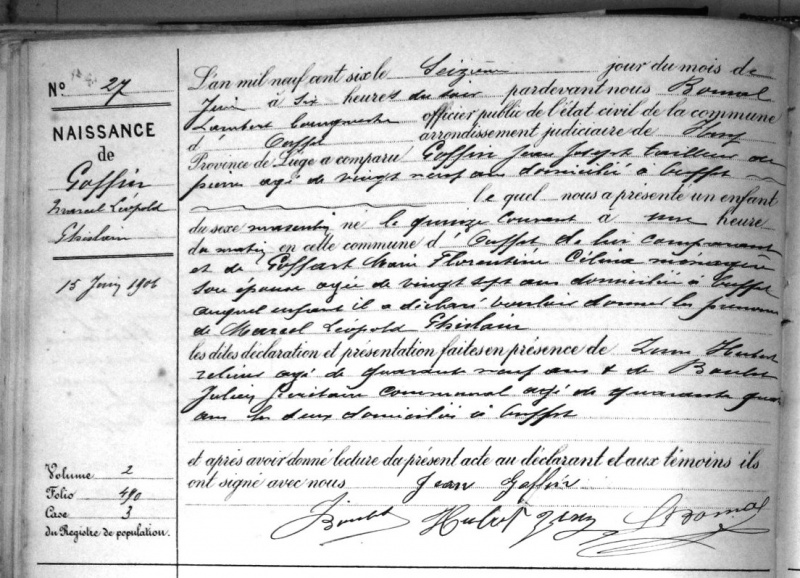 N° 27
NAISSANCE
de
Goffin
Marcel Léopold
Ghislain
15 Juin 1906
Volume 2
Folio 490
Case 3
du Registre de population.
L'an mil neuf cent six le Seizième jour du mois de
Juin à six heures du soir pardevant nous Bomal
Lambert officier public de l'état civil de la commune
d' Ouffet arrondissement judiciaire de Huy
Province de Liége a comparu Goffin Jean Joseph tailleur de
pierre agé de vingt neuf ans domicilié à Ouffet
le quel nous a présenté un enfant
du sexe masculin né le quinze courant à une heure
du matin en cette commune d' Ouffet de lui comparant
et de Goffart Marie Florentine Célina ménagère
son épouse agée de vingt sept ans domiciliée à Ouffet
auquel enfant il a déclaré vouloir donner les prénoms
de Marcel Léopold Ghislain
les dites déclaration et présentation faites en présence de Hubert
agé de quarante neuf ans & de Boulet
Julien Secrétaire communal agé de quarante
ans les deux domiciliés à Ouffet
et après avoir donné lecture du présent acte au déclarant et aux témoins ils
ont signé avec nous Jean Goffin
J Boulet Hubert L Bomal